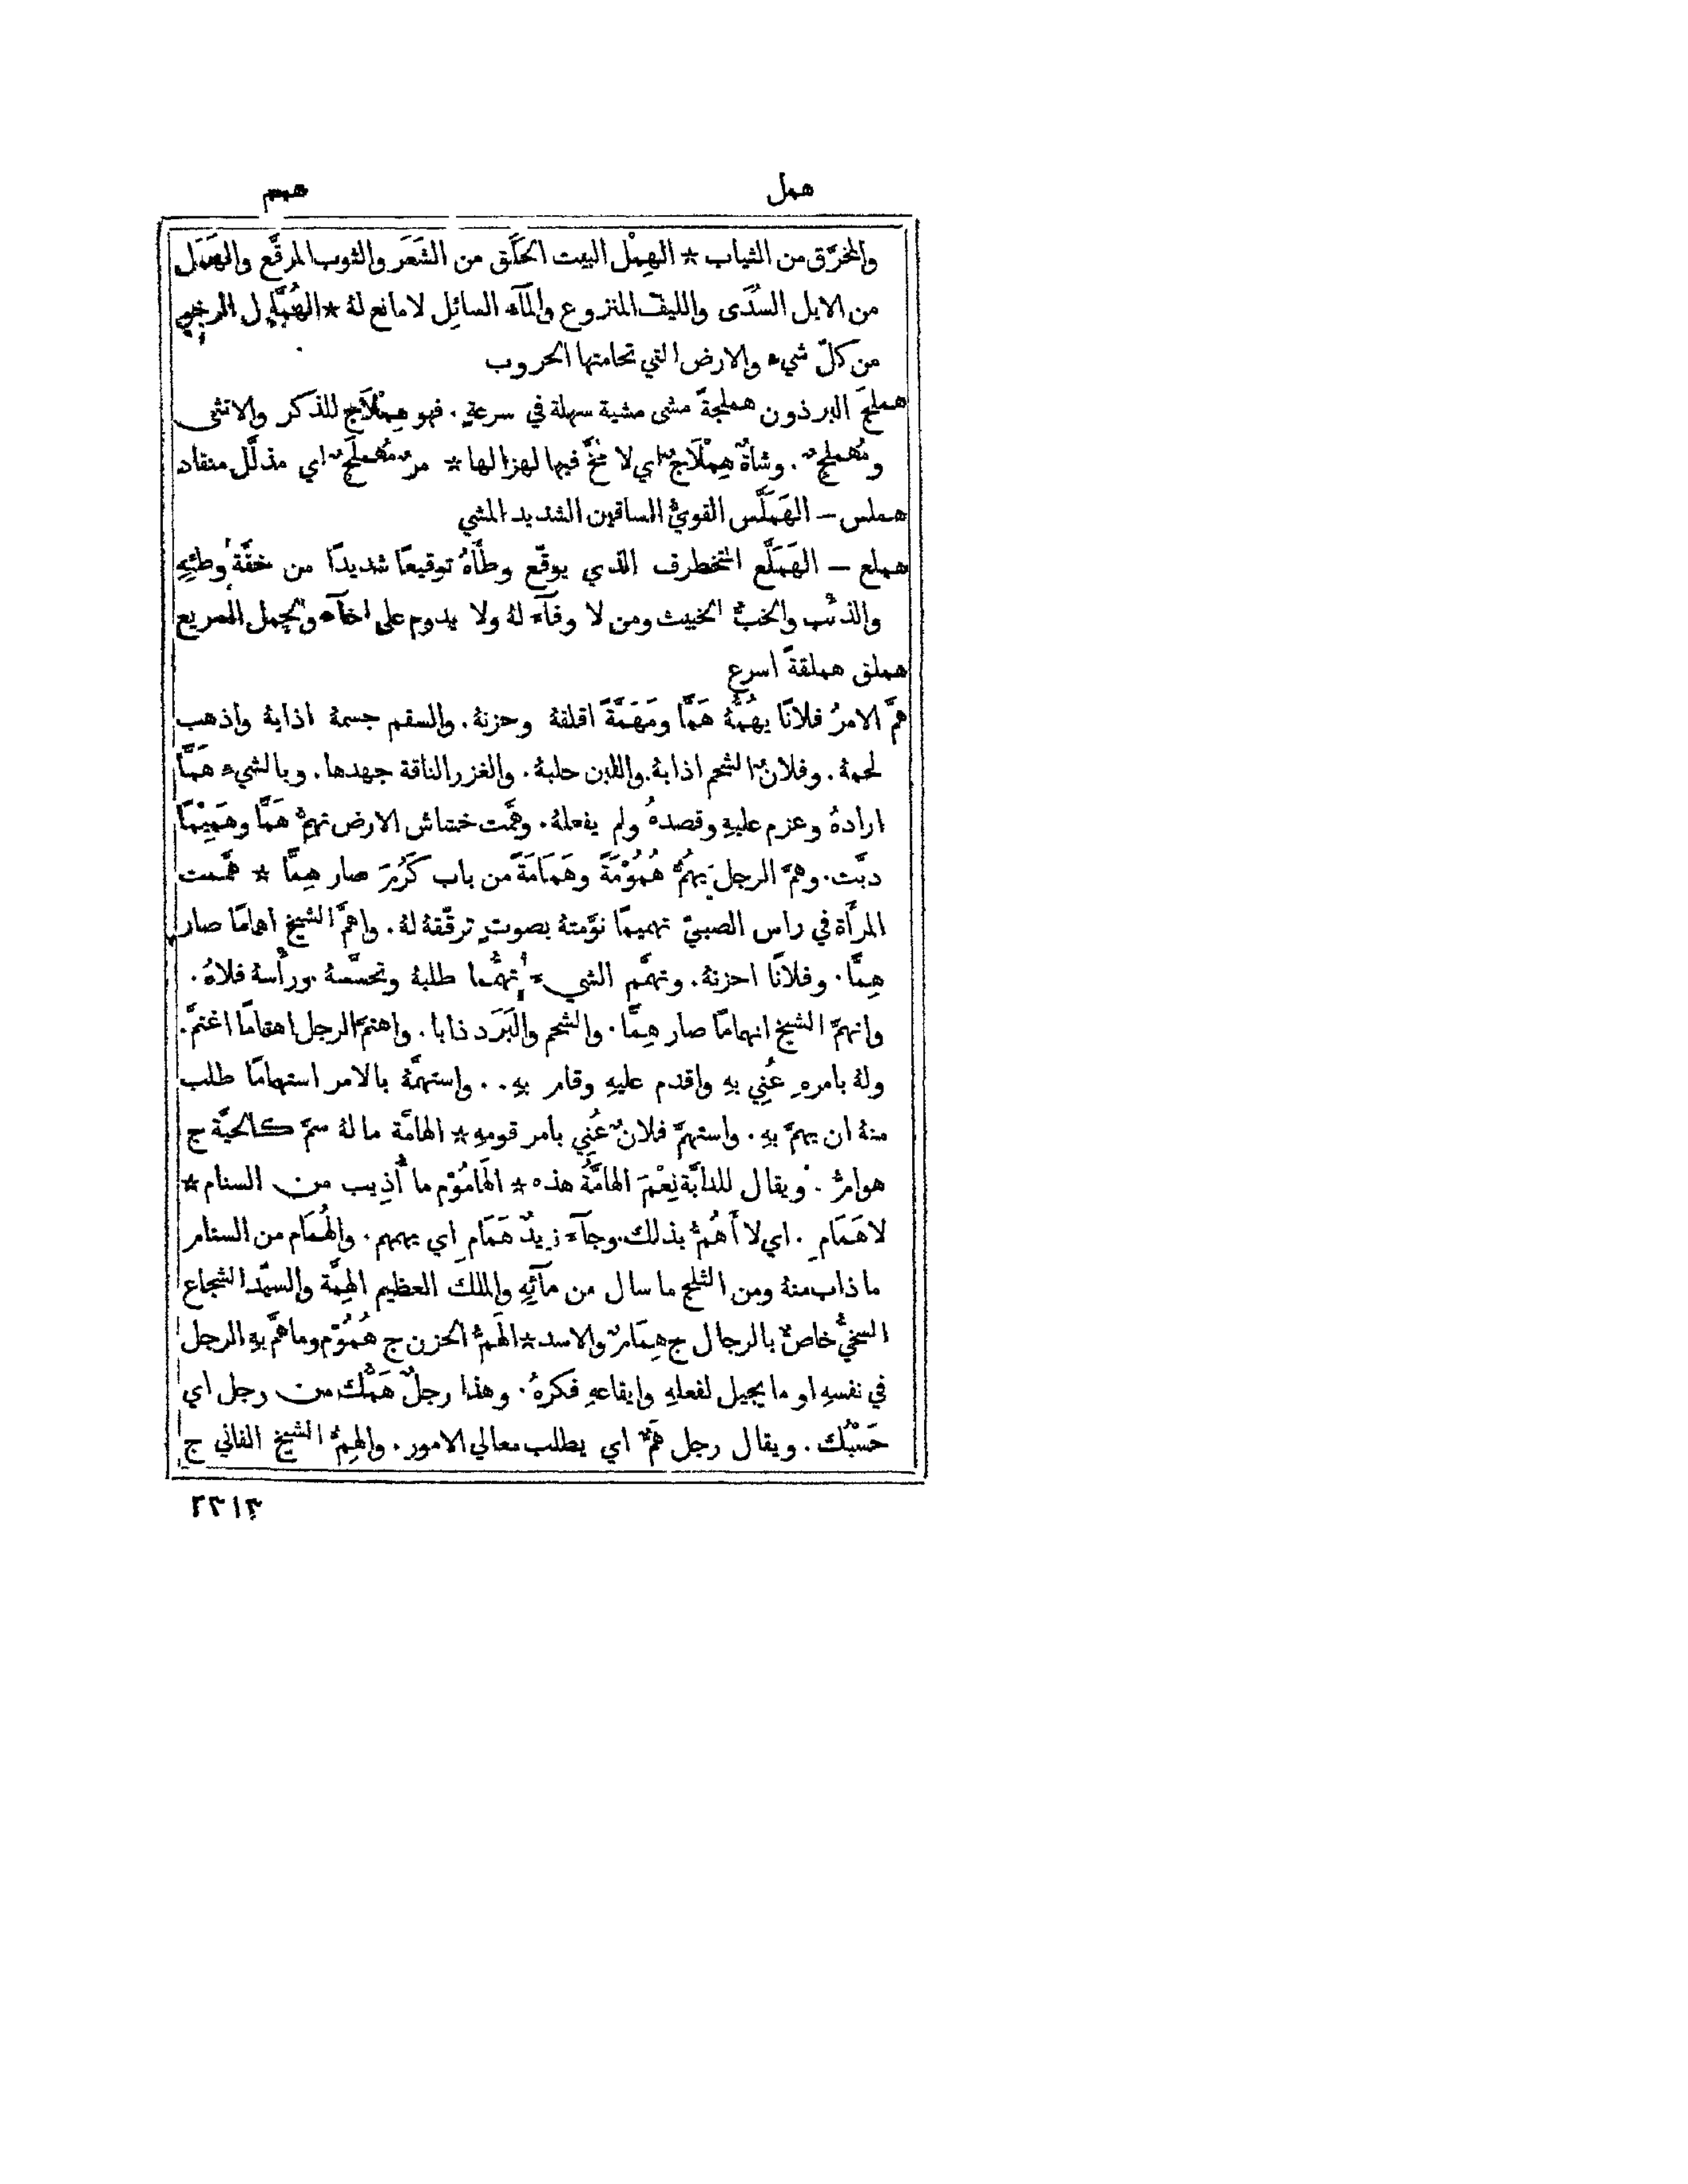 همل
همم
والمخرَّق من الثياب * الهِمْل البيت الخَلَق من الشَعَر والثوب المرقَّع والهَمَل
من الابل السُدَى والليف المنزوع والمآء السائل لا مانع لهُ * الهُمَّل الرِخْو
من كلّ شيء والارض التي تحامتها الحروب
هملجَ البرذون هملجةً مشى مشية سهلة في سرعةٍ. فهو هِمْلَاج للذكر والانثى
ومُهملِجٌ. وشاةٌ هِمْلَاجٌ اي لا مخَّ فيها لهزالها * مرٌ مُهملَجٌ اي مذلَّل منقاد
هملس – الهَمَلَّس القويُّ الساقين الشديد المشي
هملع – الهَمَلَّع المتخطرف الذي يوقّع وطأَهُ توقيعًا شديدًا من خفَّة وطئِهِ
والذئب والخبُّ الخبيث ومن لا وفآء لهُ ولا يدوم على اخآء والجمل السريع
هملق هملقةً اسرع
همَّ الامرُ فلانًا يهُمُّهُ هَمًّا ومَهَمَّةً اقلقهُ وحزنهُ. والسقم جسمهُ اذابهُ واذهب
لحمهُ. وفلانٌ الشحم اذابهُ. واللبن حلبهُ. والغزر الناقة جهدها. وبالشيء هَمًّا
ارادهُ وعزم عليهِ وقصدهُ ولم يفعلهُ. وهمَّت خشاش الارض تهِمُّ هَمًّا وهَمِيْمًا
دبَّت. وهمَّ الرجل يهُمُّ هُمُوْمَةً وهَمَامَةً من باب كَرُمَ صار هِمًّا * همَّمت
المرأَة في راس الصبيّ تهميمًا نوَّمتهُ بصوتٍ ترقّقهُ لهُ. واهمَّ الشيخ اهمامًا صار
هِمًّا. وفلانًا احزنهُ. وتهمَّم الشيء تهمُّمًا طلبهُ وتحسَّسهُ. ورأْسهُ فلاهُ.
وانهمَّ الشيخ انهمامًا صار هِمًّا. والشحم والبَرَد ذابا. واهتمَّ الرجل اهتمامًا اغتمَّ.
ولهُ بامرهِ عُنِي بهِ واقدم عليهِ وقام بهِ.. واستهمَّهُ بالامر استهمامًا طلب
منهُ ان يهمَّ بهِ. واستهمَّ فلانٌ عُنِي بامر قومهِ * الهامَّة ما لهُ سمّ كالحيَّة ج
هوامُّ. ويقال للدابَّة نِعْمَ الهامَّةُ هذه * الهَامُوْم ما أُذِيب من السنام *
لا هَمَامِ. اي لا أَهُمُّ بذلك. وجآء زيدٌ هَمَامِ اي يهمهم. والهُمَام من السنام
ما ذاب منهُ ومن الثلج ما سال من مآئِهِ والملك العظيم الهِمَّة والسيّد الشجاع
السخيُّ خاصٌ بالرجال ج هِمَامٌ والاسد * الهَمُّ الحزن ج هُمُوْم وما همَّ بهِ الرجل
في نفسهِ او ما يجيل لفعلهِ وايقاعهِ فكرهُ. وهذا رجلٌ هَمُّك من رجل اي
حَسْبُك. ويقال رجل هَمٌّ اي يطلب معالي الامور. والهِمُّ الشيخ الفاني ج